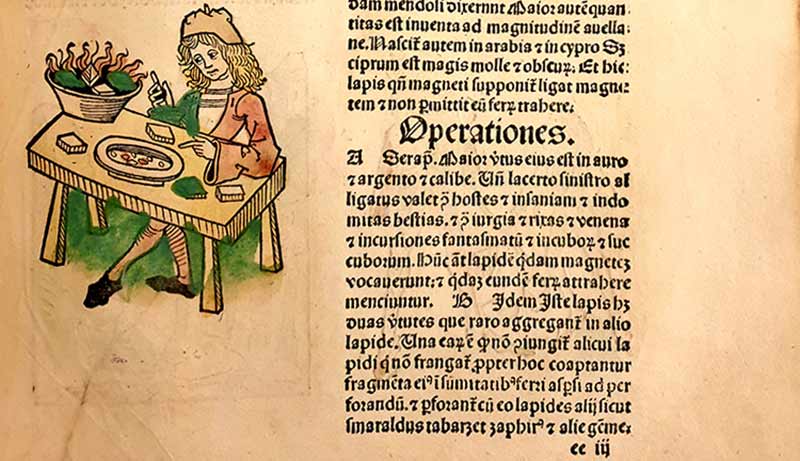 dam mendoli dixerunt Maior autē quan
titas est inuenta ad magnitudinē auella:
ne. Nascit̄ autem in arabia ⁊ in cypro Sz
ciprum est magis molle ⁊ obscur̄: Et hic:
lapis qn̄ magneti supponit̄ ligat magne
tem ⁊ non ꝑmittit eū ferr̄ trahere:
Operationes.
A Serap̄. Maior v̄tus eius est in auro
⁊ argento ⁊ calibe. Un̄ lacerto sinistro al
ligatus valet ꝓ hostes ⁊ insaniam ⁊ indo
mitas bestias. ⁊ ꝓ iurgia ⁊ rixas ⁊ venena
⁊ incursiones fantasmatū ⁊ incubor̄ ⁊ suc
cuborum. Hūc āt lapidē q̄dam magnetez
vocauerunt: ⁊ q̄daz eundē ferr̄ attrahere
menciuntur. B Idem Iste lapis hz
duas v̄tutes que raro aggregant̄ in alio
lapide. Una ear̄ ē qꝛ nō ꝯiungit̄ alicui la
pidi q̄ nō frangat̄ ꝓpter hoc coaptantur
fragmēta eiꝰ ī sūmitatibꝰ ferri aspsi ad per
forandū. ⁊ ꝑforant̄ cū eo lapides alij sicut
smaraldus tabarzet zaphirꝰ ⁊ alie gēme:
ee iij